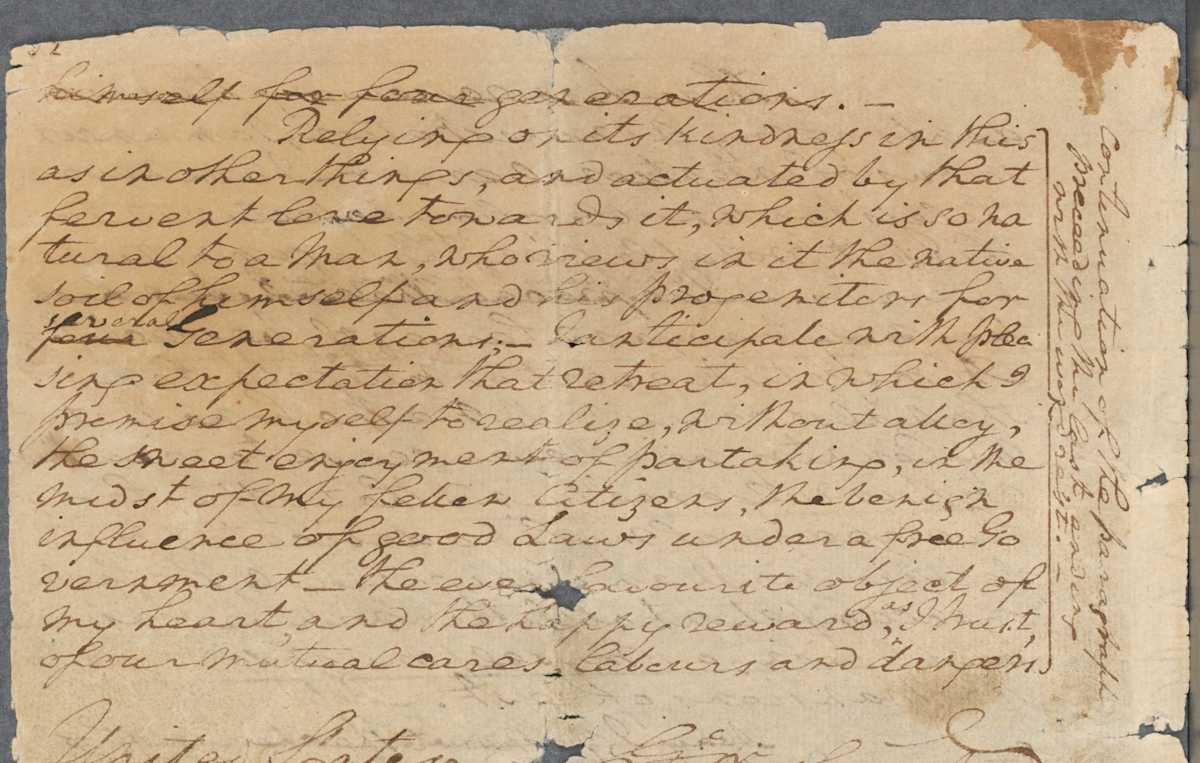 himself for four generations. —
Relying on its kindness in this
as in other things, and actuated by that
fervent love towards it, which is so na
tural to a Man, who views in it the native
soil of himself and his progenitors for
several
four Generations;— I anticipate with plea
sing expectation that retreat, in which I
promise myself to realize, without alloy,
the sweet enjoyment of partaking, in the
midst of my fellow Citizens, the benign
influence of good Laws under a free Go
vernment — the ever favourite object of
my heart, and the happy reward, as I trust,
of our mutual cares, labours and dangers.
United States
Continuation of the paragraph
preceeding the last ending
with the word rest. —